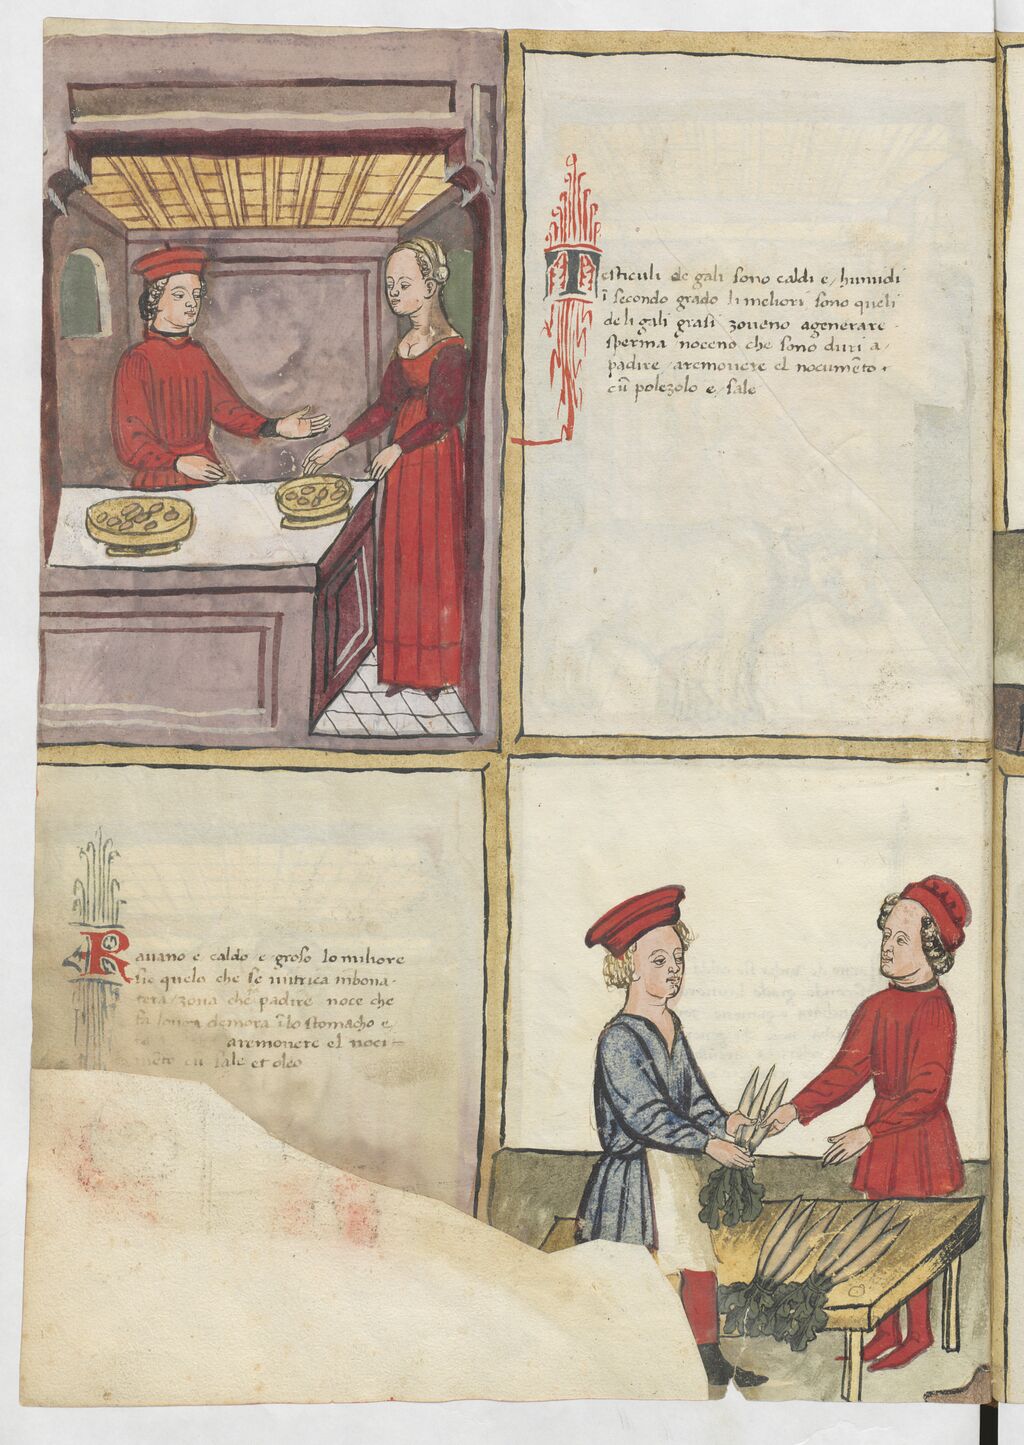 Testiculi de gali sono caldi e humidi
ĩ secondo grado li meliori sono queli
deli gali grasi zoueno agenerare
sperma noceno che sono duri a
padire aremouere el nocumẽto
cũ polezolo e sale
Rauano e caldo e groso lo miliore
sie quelo che se nutrica inbona
tera zoua che padire noce che
fa longa demora ĩ lo stomacho e
aremouere el noci
mẽto cũ sale et oleo